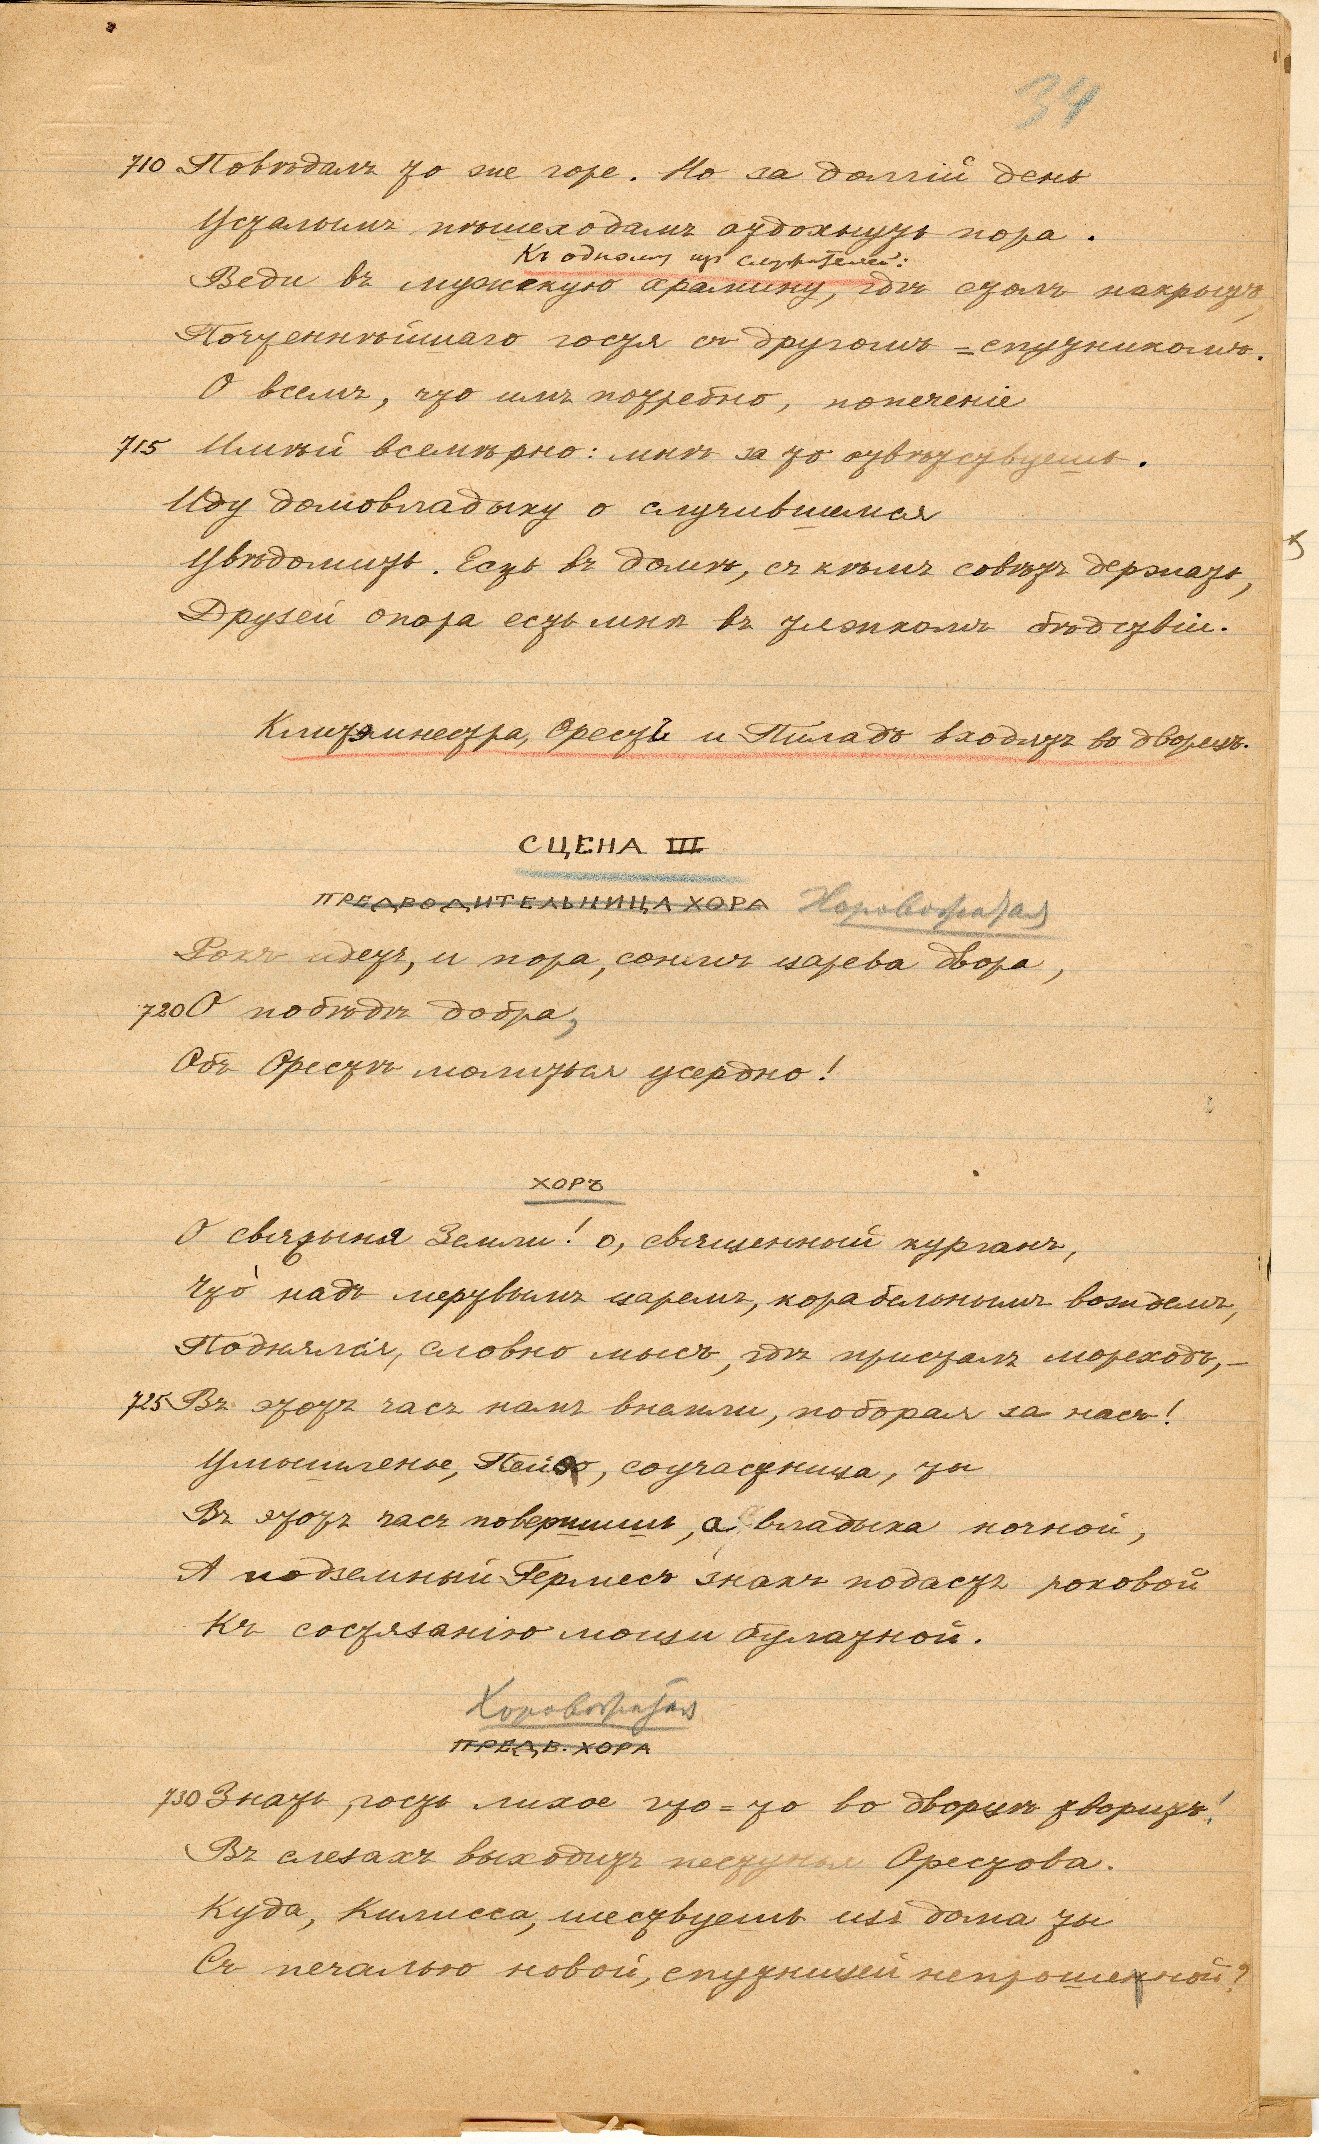 34
710 Повѣдалъ то же горе. Но за долгій день
Усталымъ пѣшеходамъ отдохнуть пора.
Къ одному из служителей:
Веди въ мужескую храмину, гдѣ столъ накрытъ,
Почтеннѣйшаго гостя съ другомъ=спутникомъ.
О всемъ, что имъ потребно, попеченіе
715 Имѣй всемѣрно: мнѣ за то отвѣтствуешь.
Иду домовладыку о случившемся
Увѣдомить. Есть въ домѣ, съ кѣмъ совѣтъ держать,
Друзей опора есть мнѣ въ тяжкомъ бѣдствіи.
Клитэмнестра, Орестъ и Пиладъ входятъ во дворецъ.
СЦЕНА III
ПРЕДВОДИТЕЛЬНИЦА ХОРА Хоровожатая
Рокъ идетъ, и пора, сонмъ царева двора,
720 О побѣдѣ добра,
Объ Орестѣ молиться усердно!
ХОРЪ
О святыня Земли! о, священный курганъ,
Что́ надъ мертвымъ царемъ, корабельнымъ вождемъ,
Поднялся, словно мысъ, гдѣ присталъ мореходъ,—
725 Въ этотъ часъ намъ внемли, поборая за насъ!
Умышленье, Пейѳо, соучастница, ты
Въ этотъ часъ повершишь, а владыка ночной,
А подземный Гермесъ знакъ подастъ роковой
Къ состязанію мощи булатной.
Хоровожатая
ПРЕДВ. ХОРА
730 Знать, гость лихое что=то во дворцѣ творитъ!
Въ слезахъ выходитъ пестунья Орестова.
Куда, Килисса, шествуешь изъ дома ты
Съ печалью новой, спутницей непрошенной?